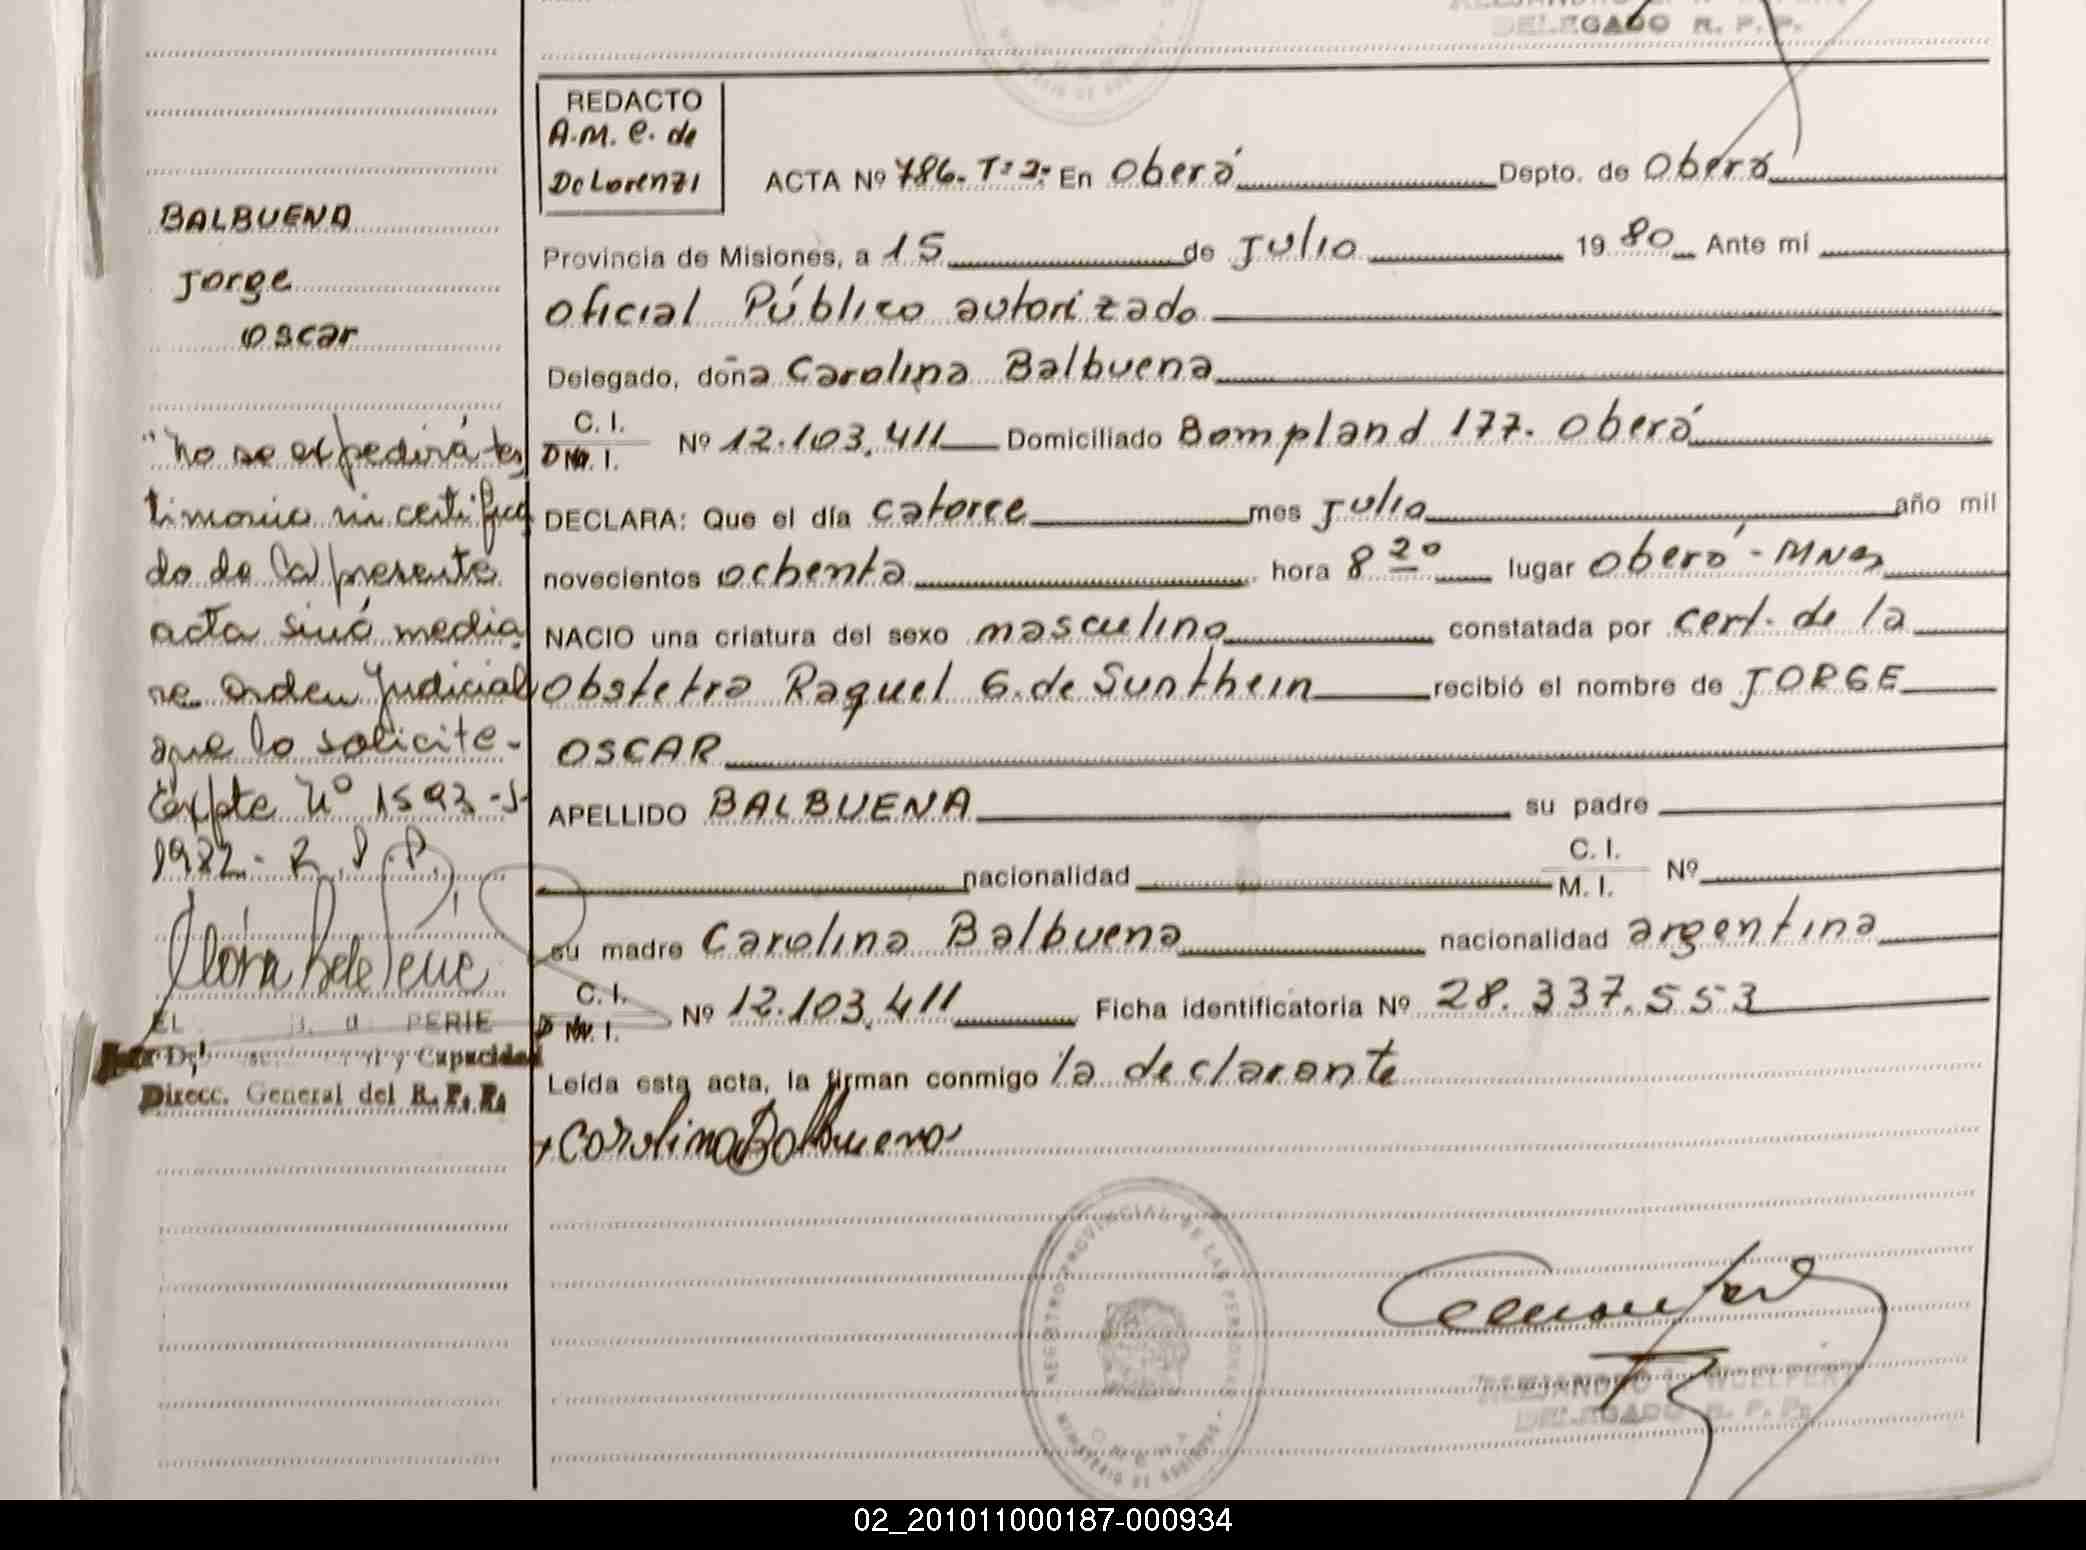 DELEGADO R. P. P.
REDACTO
A.M.C. de
De Lorenzi
ACTA Nº 786. Tº 2º En Oberá Depto. de Oberá
Provincia de Misiones, a 15 de Julio 19 80 Ante mí
Oficial Público autorizado
Delegado, doña Carolina Balbuena
C. I.
D.N. I. Nº 12.103.411 Domiciliado Bompland 177. Oberá
DECLARA: Que el día catorce mes Julio año mil
novecientos ochenta hora 8 20 lugar Oberá - Mnes
NACIO una criatura del sexo masculino constatada por cert. de la
Obstetra Raquel G. de Sunthein recibió el nombre de JORGE
OSCAR
APELLIDO BALBUENA su padre
nacionalidad C. I. M. I. Nº
su madre Carolina Balbuena nacionalidad argentina
C. I.
D.N. I. Nº 12.103.411 Ficha identificatoria Nº 28.337.553
Leída esta acta, la firman conmigo la declarante
Carolina Balbuena
REGISTRO PROVINCIAL DE LAS PERSONAS
MINISTERIO DE GOBIERNO
ALEJANDRO WOELFERT
DELEGADO R. P. P.
BALBUENA
Jorge
Oscar
"No se expedirá tes
timonio ni certifica
do de la presente
acta sinó media
ne Orden Judicial
que lo solicite.
Expte Nº 1593-J-
1982. R.P.P.
PERIE
y Capacidad
Direcc. General del R. P. P.
02_201011000187-000934